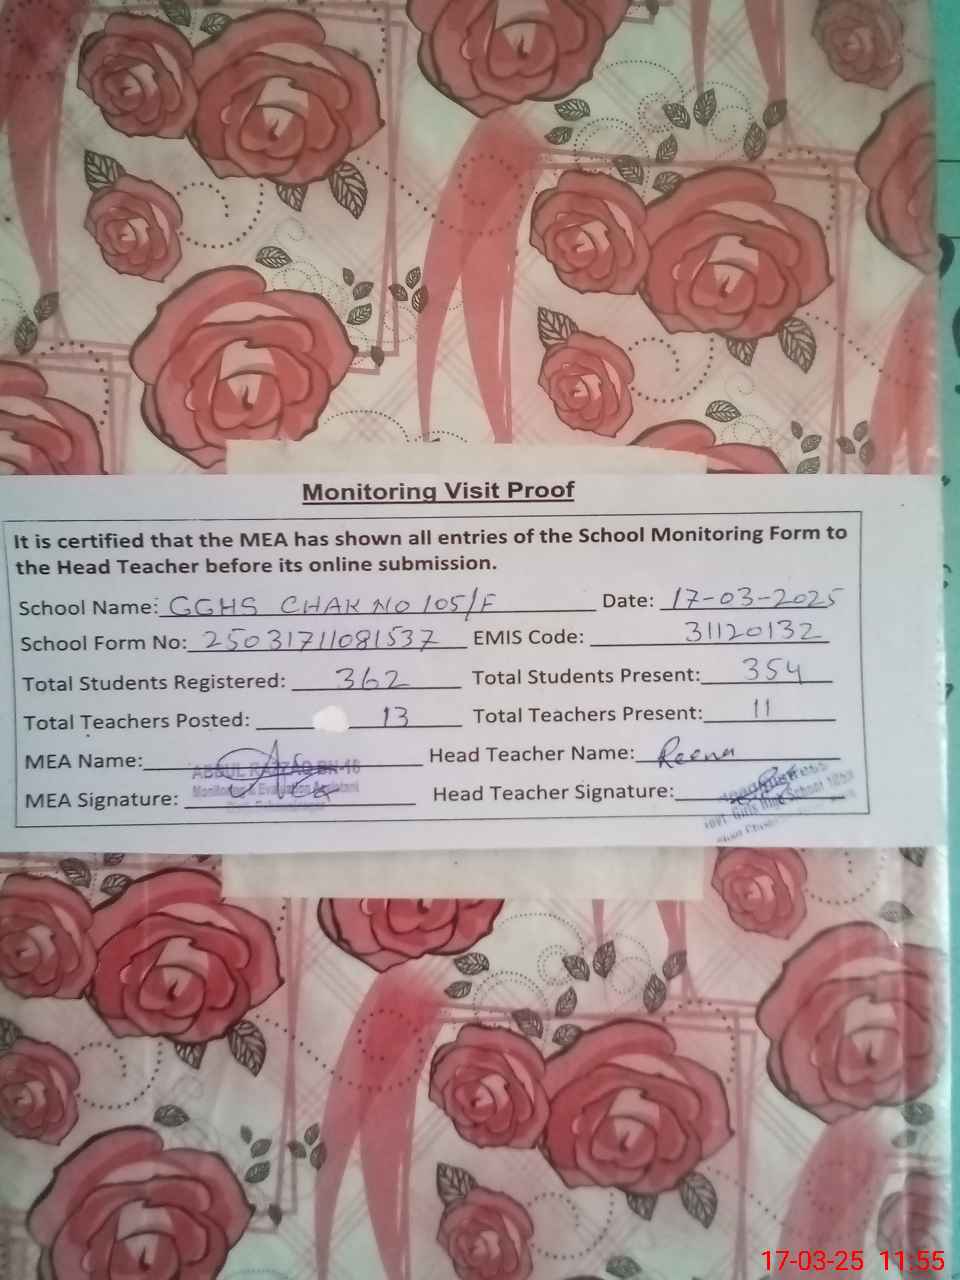 Monitoring Visit Proof
It is certified that the MEA has shown all entries of the School Monitoring Form to
the Head Teacher before its online submission.
School Name: GGHS CHAK NO 105/F Date: 17-03-2025
School Form No: 25031711081537 EMIS Code: 31120132
Total Students Registered: 362 Total Students Present: 354
Total Teachers Posted: 13 Total Teachers Present: 11
MEA Name: ABDUL RAZZAQ BN-18 Head Teacher Name: Reena
Monitoring & Evaluation Assistant
MEA Signature: Head Teacher Signature:
Girls High School
17-03-25 11:55